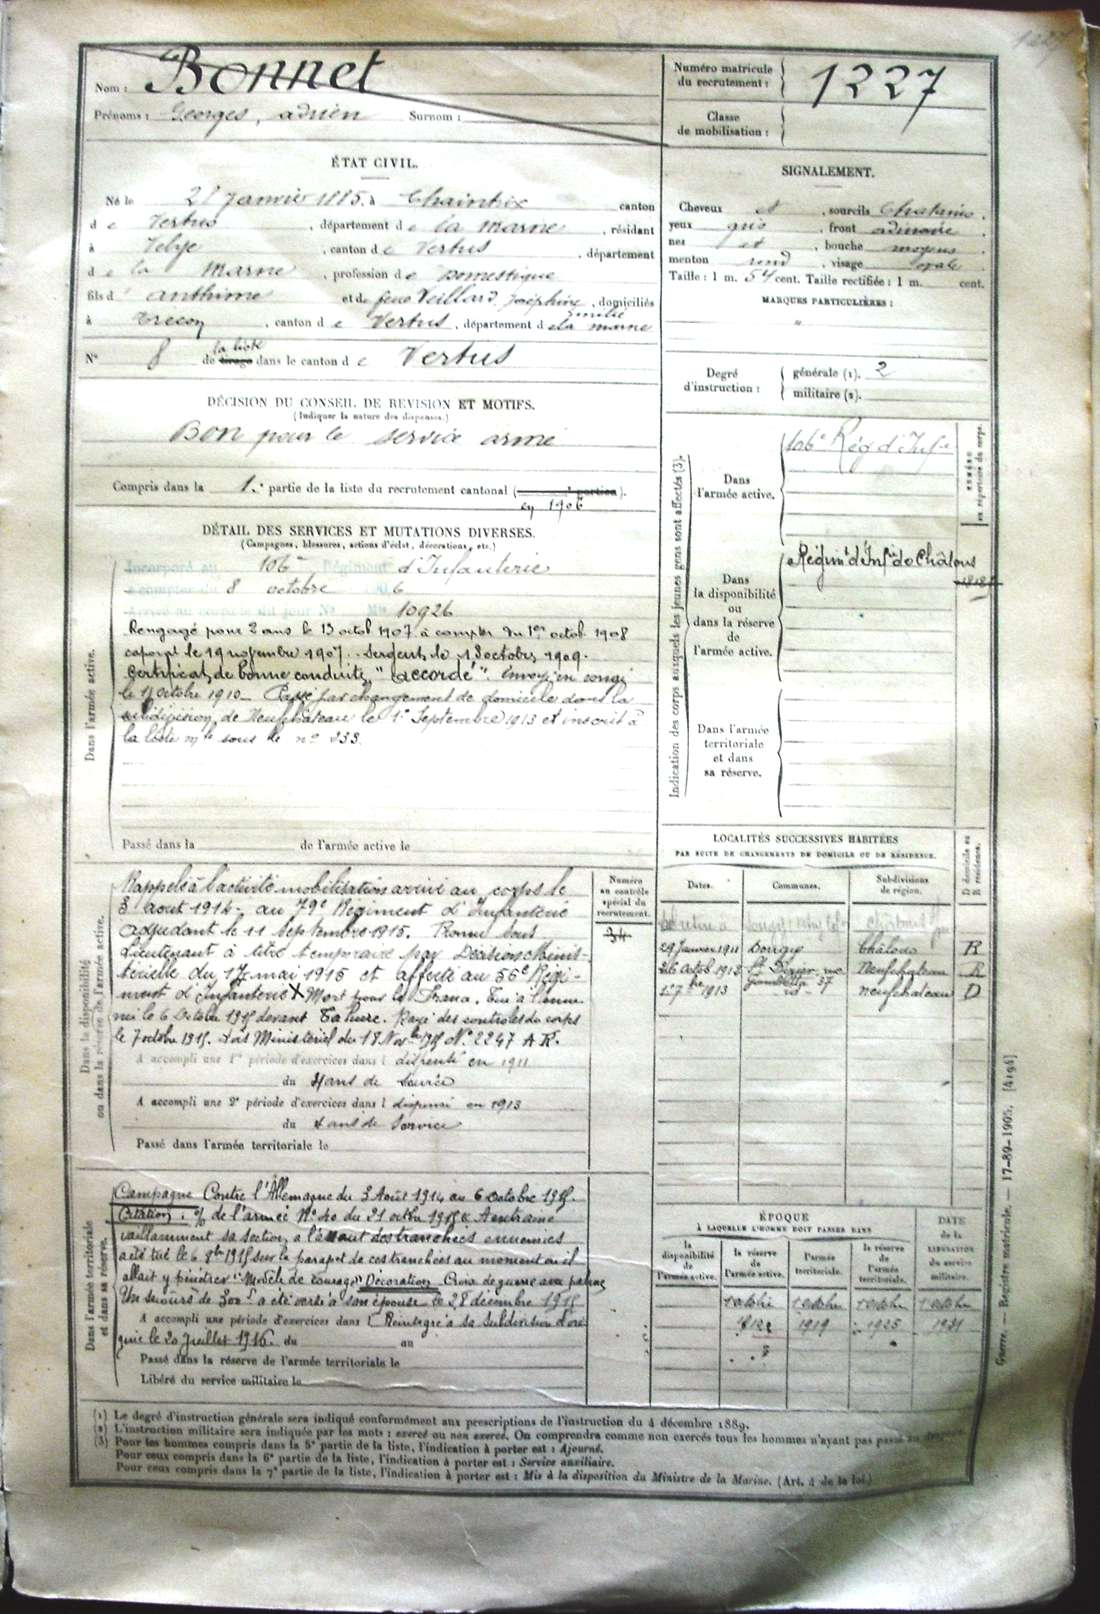 Nom : Bonnet
Prénoms : Georges, adrien Surnom :
Numéro matricule
du recrutement : 1227
Classe
de mobilisation :
ÉTAT CIVIL.
Né le janvier 1885, à Chaintrix canton
de Vertus, département de la Marne, résidant
à Velye, canton de Vertus, département
de la Marne, profession de Domestique
fils d'anthime et de feue Veillard Joséphine Emilie, domiciliés
à Trecon, canton de Vertus, département de la marne
N° 8 de la liste tirage dans le canton de Vertus
SIGNALEMENT.
Cheveux et, sourcils Chatains.
yeux gris, front ordinaire.
nez et, bouche moyens.
menton rond, visage ovale
Taille : 1 m. 54 cent. Taille rectifiée : 1 m. cent.
MARQUES PARTICULIÈRES :
"
Degré
d'instruction :
générale (1). 2
militaire (2).
DÉCISION DU CONSEIL DE REVISION ET MOTIFS.
(Indiquer la nature des dispenses.)
Bon pour le service armé
Compris dans la 1e partie de la liste du recrutement cantonal ( portion).
en 1906
DÉTAIL DES SERVICES ET MUTATIONS DIVERSES.
(Campagnes, blessures, actions d'éclat, décorations, etc.)
Dans l'armée active.
Incorporé au 106e Régiment d'Infanterie
à compter du 8 octobre 1906
Arrivé au corps le dit jour No Mle 10926
Rengagé pour 2 ans le 13 octob 1907 à compter du 1er octob. 1908
caporal le 19 novembre 1907. Sergent le octobre 1909.
Certificat de bonne conduite "accordé". Envoyé en congé
le octobre 1910 — Passé par changement de domicile dans la
subdivision de Neufchâteau le 1er Septembre 1913 et inscrit à
la liste mle sous le no 233.
Passé dans la de l'armée active le
Indication des corps auxquels les jeunes gens sont affectés (3).
Dans
l'armée active.
106e Rég d'Infie
NUMÉRO
au répertoire du corps.
Dans
la disponibilité
ou
dans la réserve
de
l'armée active.
Régimt d'Infie de Châlons
Dans l'armée
territoriale
et dans
sa réserve.
Dans la disponibilité
ou dans la réserve de l'armée active.
Numéro
au contrôle
spécial du
recrutement.
34
Rappelé à l'activité mobilisation arrivé au corps le
3 aout 1914 au 79e Régiment d'Infanterie
adjudant le 11 Septembre 1915. Promu Sous
Lieutenant à titre temporaire par Décision Minis-
térielle du 17 mai 1915 et affecté au 56e Régi-
ment d'Infanterie X Mort pour la France. Tué à l'enne-
mi le 6 Octobre 1915 devant Tahure. Rayé des contrôles du corps
le 7 octobre 1915. Avis Ministériel du 18 Novbre 1915 No 2247 A.R.
A accompli une 1re période d'exercices dans l dispensé en 1911
du 4 ans de Service
A accompli une 2e période d'exercices dans l dispensé en 1913
du 4 ans de Service
Passé dans l'armée territoriale le
LOCALITÉS SUCCESSIVES HABITÉES
PAR SUITE DE CHANGEMENTS DE DOMICILE OU DE RÉSIDENCE.
Dates. Communes. Subdivisions
de région. D domicile ou
R résidence.
29 Janvier 1911 Châlons R
26 octob 1912 St Dizier rue Gambetta 37 Neufchateau R
1er 7bre 1913 id neufchateau D
Dans l'armée territoriale
et dans sa réserve.
Campagne Contre l'Allemagne du 3 Août 1914 au 6 Octobre 1915.
Citation : O/ de l'armée No 40 du 21 octbre 1915 : A entrainé
vaillamment sa section, à l'assaut des tranchées ennemies
a été tué le 6 8bre 1915 sur le parapet de ces tranchées au moment où il
allait y pénétrer. "Modèle de courage" Décoration Croix de guerre avec palme
Un secours de 300f a été versé à son épouse le 28 décembre 1915
A accompli une période d'exercices dans l Réintégré à sa subdivision d'ori-
gine le 20 Juillet 1916. du au
Passé dans la réserve de l'armée territoriale le
Libéré du service militaire le
ÉPOQUE
À LAQUELLE L'HOMME DOIT PASSER DANS
la
disponibilité
de
l'armée active. la réserve
de
l'armée active. l'armée
territoriale. la réserve
de
l'armée
territoriale.
DATE
de la
LIBÉRATION
du service
militaire.
1 octobre 1 octobre 1 octobre 1 octobre
1919 1925 1931
(1) Le degré d'instruction générale sera indiqué conformément aux prescriptions de l'instruction du 4 décembre 1889.
(2) L'instruction militaire sera indiquée par les mots : exercé ou non exercé. On comprendra comme non exercés tous les hommes n'ayant pas passé au drapeau.
(3) Pour les hommes compris dans la 5e partie de la liste, l'indication à porter est : Ajourné.
Pour ceux compris dans la 6e partie de la liste, l'indication à porter est : Service auxiliaire.
Pour ceux compris dans la 7e partie de la liste, l'indication à porter est : Mis à la disposition du Ministre de la Marine. (Art. 4 de la loi.)
Guerre. — Registre matricule. — 17-89-1905. [4194]